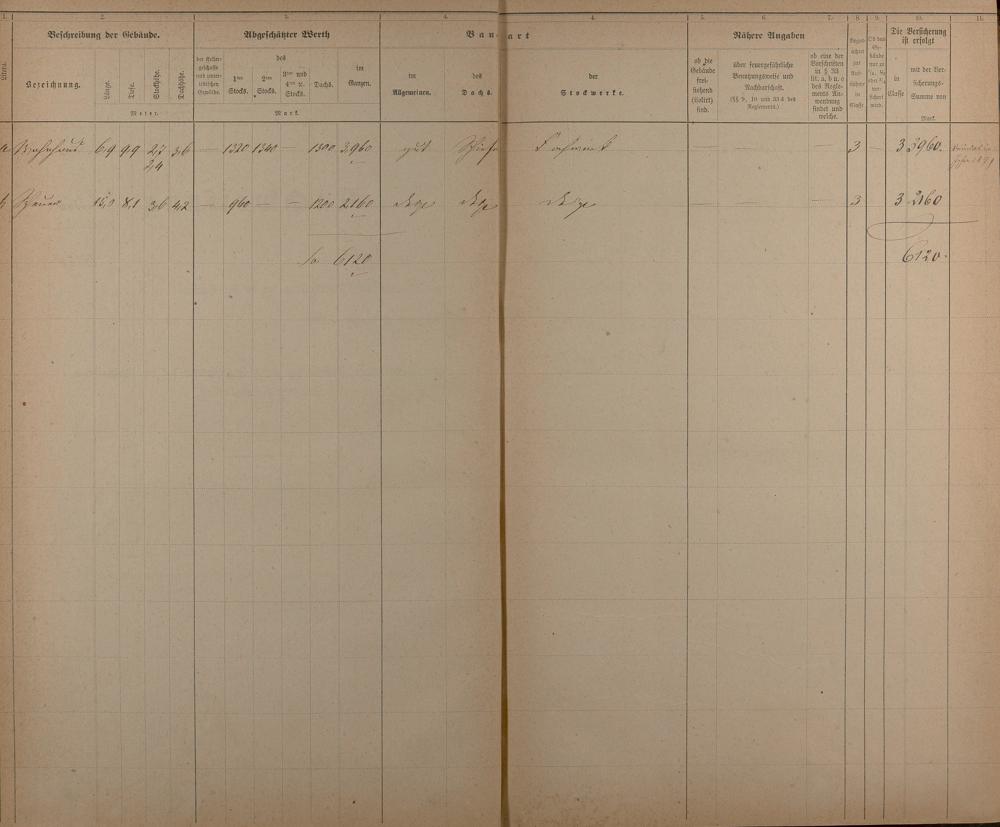 1. 2. 3. 4. 4. 5. 6. 7. 8. 9. 10. 11.
Beschreibung der Gebäude. Abgeschätzter Werth Bauart Nähere Angaben Die Versicherung ist erfolgt
Litera.
Bezeichnung. Länge. Tiefe. Stockhöhe. Dachhöhe.
Meter.
der Keller-geschosse und unter-irdischen Gewölbe.
des
1ten Stocks. 2ten Stocks. 3ten und 4ten 2c. Stocks. Dachs.
im Ganzen.
Mark.
im Allgemeinen. des Dachs. der Stockwerke.
ob die Gebäude frei-stehend (isolirt) sind.
über feuergefährliche Benutzungsweise und Nachbarschaft.
(§§ 9, 10 und 33 d des Reglements.)
ob eine der Vorschriften in § 33 lit. a, b u. c des Regle-ments An-wendung findet und welche.
in Classe
in Classe
mit der Ver-sicherungs-Summe von
Mark.
a Wohnhaus 6,9 9,9 2,7 3,6 — 1320 1340 — 1300 3960 gut Schiefer Fachwerk — — — 3 — 3 3960.
2,4
b Scheuer 15,0 8,1 3,6 4,2 — 960 — — 1200 2160 dsgl. dsgl. dsgl. — — — 3 3 2160
Sa 6120 6120.